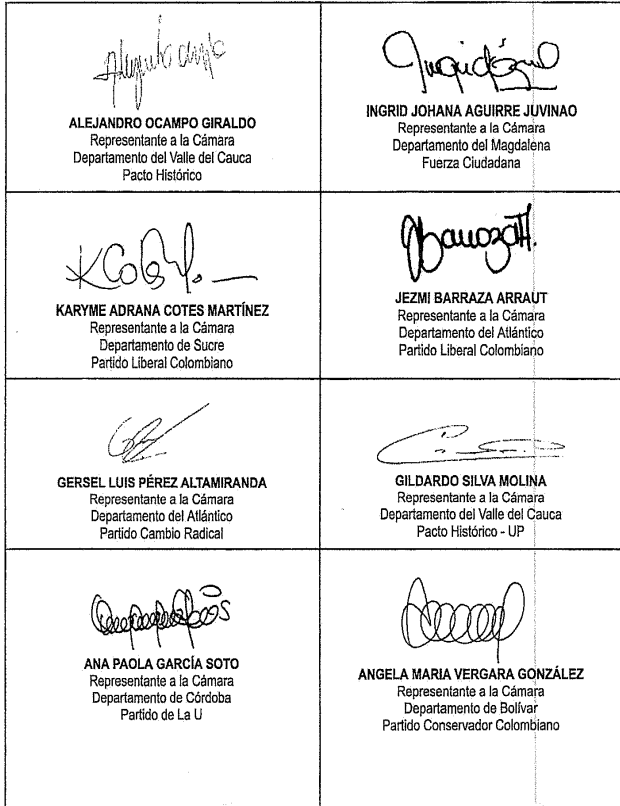 ALEJANDRO OCAMPO GIRALDO
Representante a la Cámara
Departamento del Valle del Cauca
Pacto Histórico
INGRID JOHANA AGUIRRE JUVINAO
Representante a la Cámara
Departamento del Magdalena
Fuerza Ciudadana
KARYME ADRANA COTES MARTÍNEZ
Representante a la Cámara
Departamento de Sucre
Partido Liberal Colombiano
JEZMI BARRAZA ARRAUT
Representante a la Cámara
Departamento del Atlántico
Partido Liberal Colombiano
GERSEL LUIS PÉREZ ALTAMIRANDA
Representante a la Cámara
Departamento del Atlántico
Partido Cambio Radical
GILDARDO SILVA MOLINA
Representante a la Cámara
Departamento del Valle del Cauca
Pacto Histórico - UP
ANA PAOLA GARCÍA SOTO
Representante a la Cámara
Departamento de Córdoba
Partido de La U
ANGELA MARIA VERGARA GONZÁLEZ
Representante a la Cámara
Departamento de Bolívar
Partido Conservador Colombiano